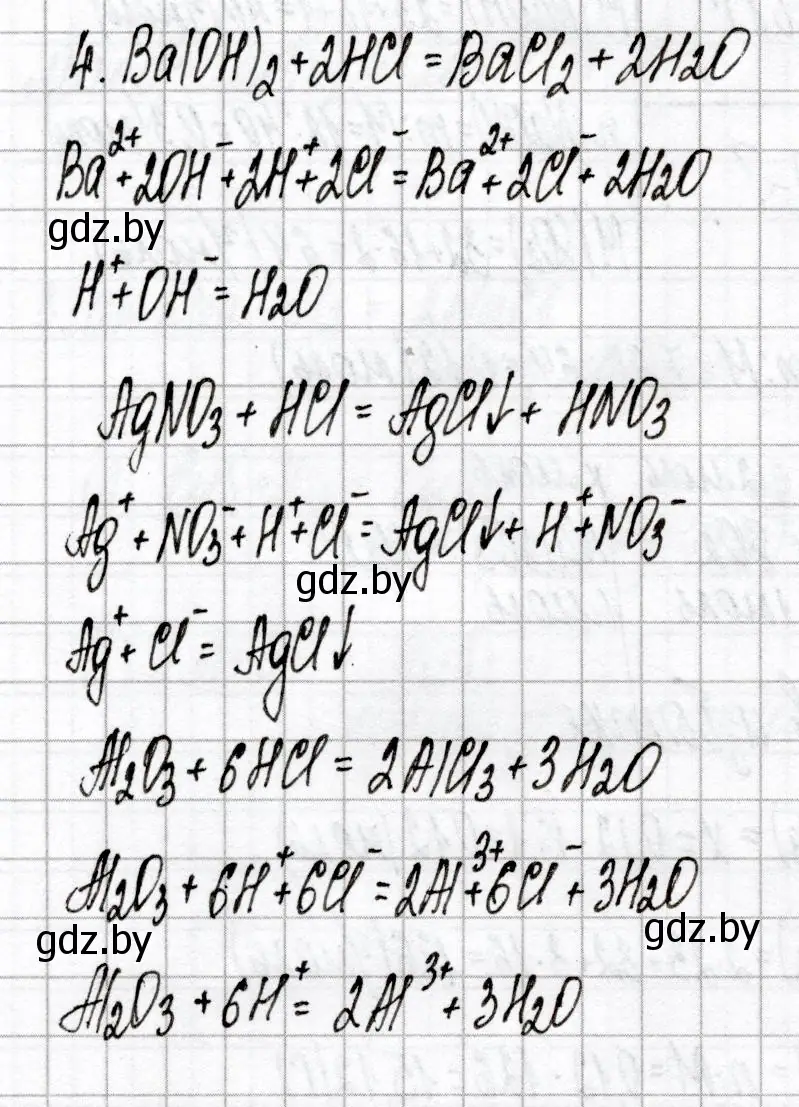 4. Ba(OH)₂ + 2HCl = BaCl₂ + 2H₂O
Ba²⁺ + 2OH⁻ + 2H⁺ + 2Cl⁻ = Ba²⁺ + 2Cl⁻ + 2H₂O
gdz.by
H⁺ + OH⁻ = H₂O
AgNO₃ + HCl = AgCl↓ + HNO₃
Ag⁺ + NO₃⁻ + H⁺ + Cl⁻ = AgCl↓ + H⁺ + NO₃⁻
gdz.by
Ag⁺ + Cl⁻ = AgCl↓
Al₂O₃ + 6HCl = 2AlCl₃ + 3H₂O
Al₂O₃ + 6H⁺ + 6Cl⁻ = 2Al³⁺ + 6Cl⁻ + 3H₂O
gdz.by
gdz.by
Al₂O₃ + 6H⁺ = 2Al³⁺ + 3H₂O